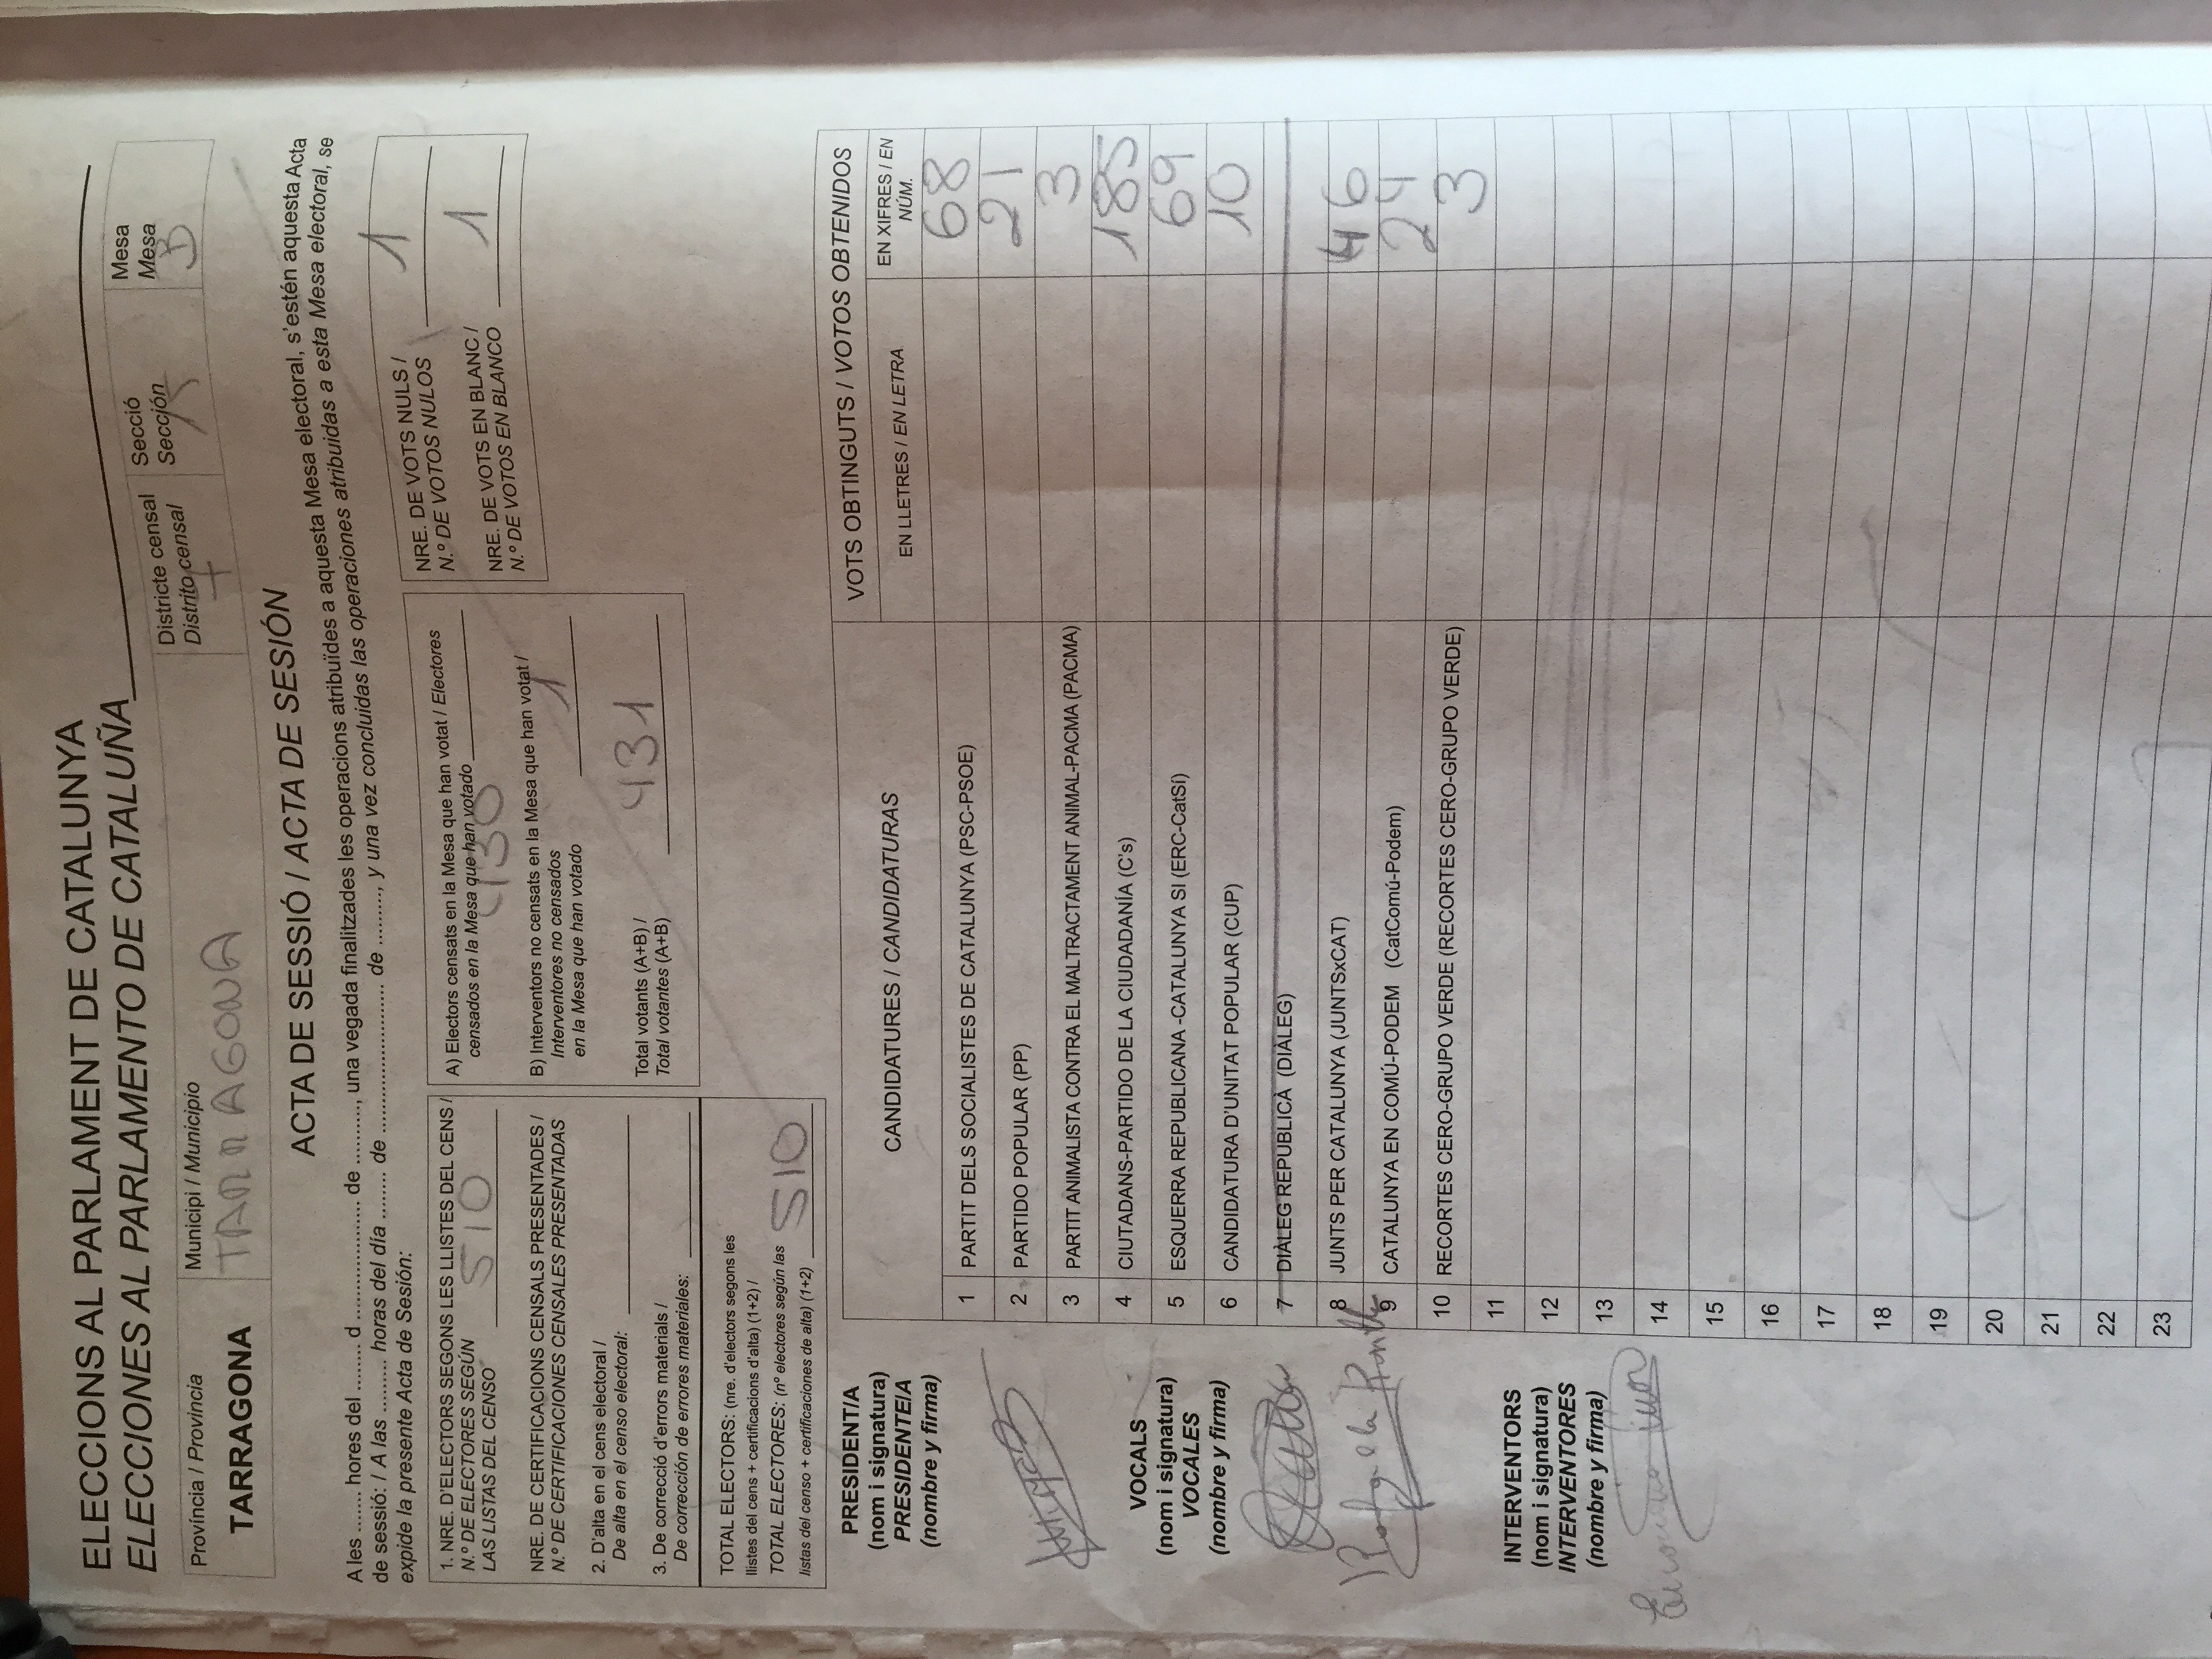 ELECCIONS AL PARLAMENT DE CATALUNYA
ELECCIONES AL PARLAMENTO DE CATALUÑA
Província / Provincia
TARRAGONA
Municipi / Municipio
TARRAGONA
Districte censal
Distrito censal
Secció
Sección
Mesa
Mesa
B
ACTA DE SESSIÓ / ACTA DE SESIÓN
A les ....... hores del ........ d .................... de .........., una vegada finalitzades les operacions atribuïdes a aquesta Mesa electoral, s'estén aquesta Acta
de sessió: / A las ......... horas del día ........ de ......................... de ........., y una vez concluidas las operaciones atribuidas a esta Mesa electoral, se
expide la presente Acta de Sesión:
1. NRE. D'ELECTORS SEGONS LES LLISTES DEL CENS /
N.º DE ELECTORES SEGÚN
LAS LISTAS DEL CENSO 510
NRE. DE CERTIFICACIONS CENSALS PRESENTADES /
N.º DE CERTIFICACIONES CENSALES PRESENTADAS
2. D'alta en el cens electoral /
De alta en el censo electoral:
3. De correcció d'errors materials /
De corrección de errores materiales:
TOTAL ELECTORS: (nre. d'electors segons les
llistes del cens + certificacions d'alta) (1+2) /
TOTAL ELECTORES: (nº electores según las
listas del censo + certificaciones de alta) (1+2) 510
A) Electors censats en la Mesa que han votat / Electores
censados en la Mesa que han votado
430
B) Interventors no censats en la Mesa que han votat /
Interventores no censados
en la Mesa que han votado 1
Total votants (A+B) /
Total votantes (A+B) 431
NRE. DE VOTS NULS /
N.º DE VOTOS NULOS 1
NRE. DE VOTS EN BLANC /
N.º DE VOTOS EN BLANCO 1
PRESIDENT/A
(nom i signatura)
PRESIDENTE/A
(nombre y firma)
VOCALS
(nom i signatura)
VOCALES
(nombre y firma)
Rafaela
INTERVENTORS
(nom i signatura)
INTERVENTORES
(nombre y firma)
CANDIDATURES / CANDIDATURAS
VOTS OBTINGUTS / VOTOS OBTENIDOS
EN LLETRES / EN LETRA
EN XIFRES / EN
NÚM.
1 PARTIT DELS SOCIALISTES DE CATALUNYA (PSC-PSOE) 68
2 PARTIDO POPULAR (PP) 21
3 PARTIT ANIMALISTA CONTRA EL MALTRACTAMENT ANIMAL-PACMA (PACMA) 3
4 CIUTADANS-PARTIDO DE LA CIUDADANÍA (C's) 185
5 ESQUERRA REPUBLICANA -CATALUNYA SI (ERC-CatSí) 69
6 CANDIDATURA D'UNITAT POPULAR (CUP) 10
7 DIÀLEG REPUBLICÀ (DIÀLEG)
8 JUNTS PER CATALUNYA (JUNTSxCAT) 46
9 CATALUNYA EN COMÚ-PODEM (CatComú-Podem) 24
10 RECORTES CERO-GRUPO VERDE (RECORTES CERO-GRUPO VERDE) 3
11
12
13
14
15
16
17
18
19
20
21
22
23